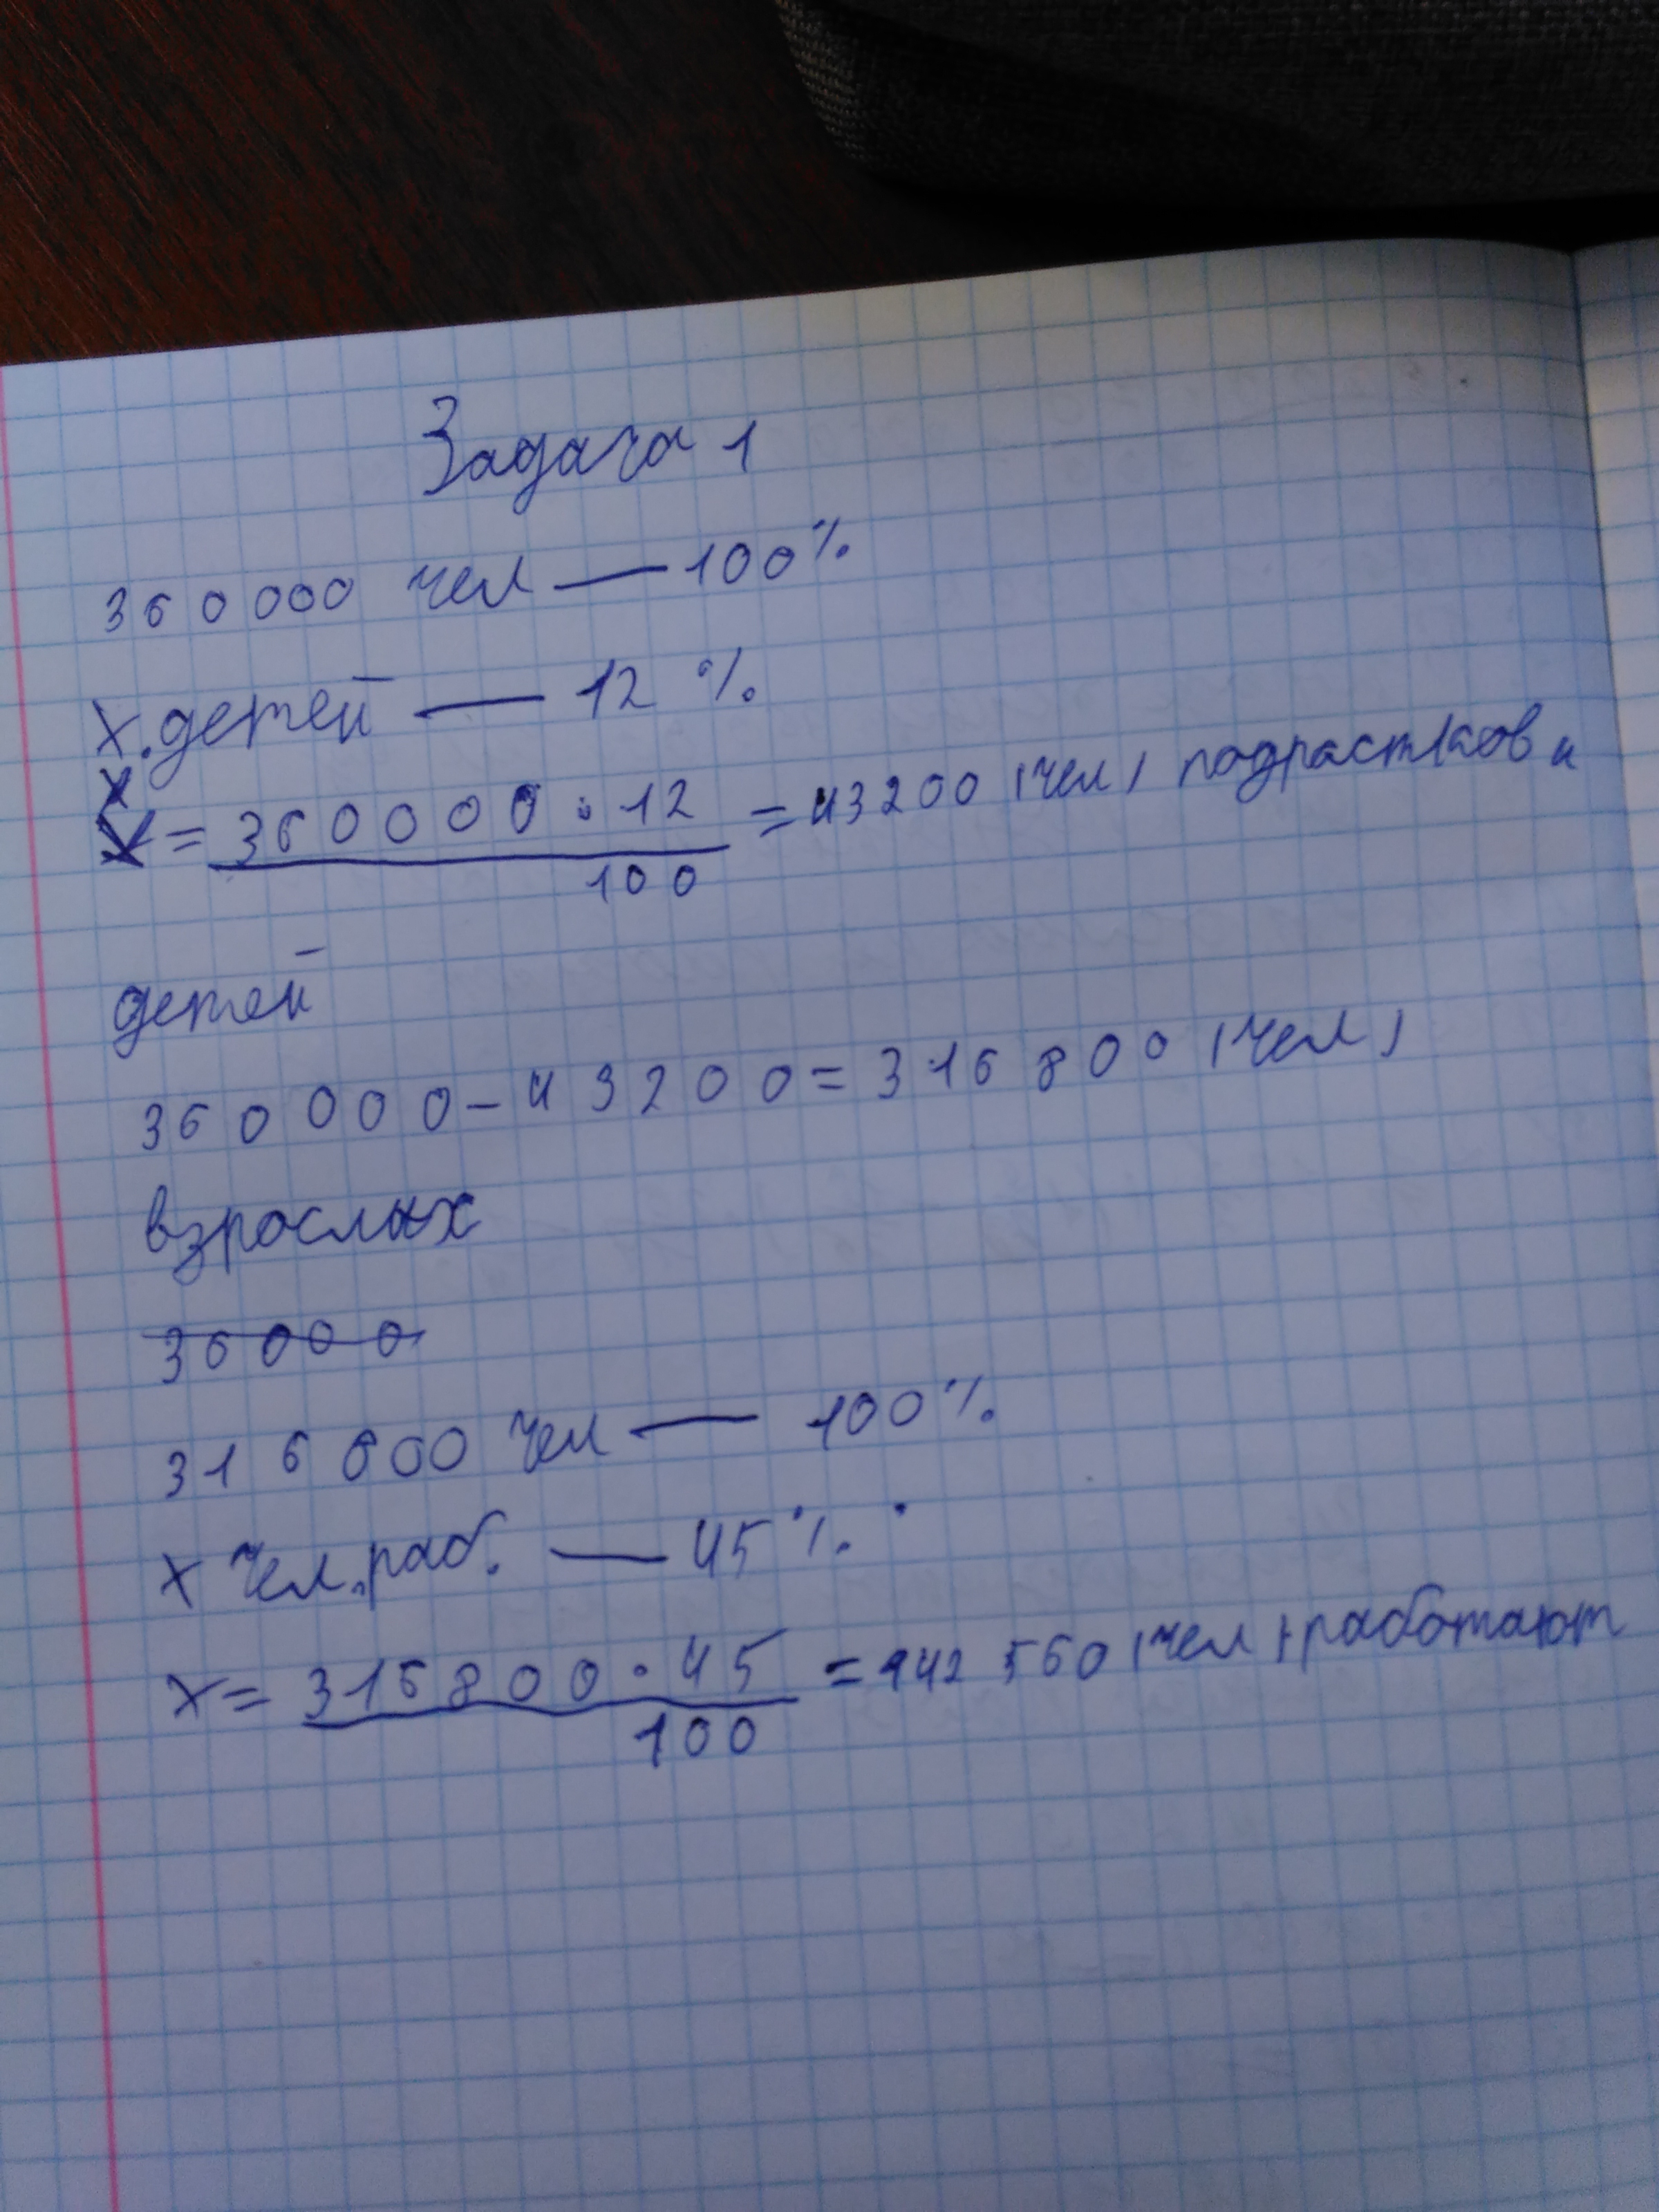 Задача 1
360000 чел — 100%
x.детей — 12 %
x
x = 360000 · 12 = 43200 (чел) подрастков и
100
детей
360000 - 43200 = 316800 (чел)
взрослых
36000
316800 чел — 100%
x чел.раб. — 45%
x = 316800 · 45 = 142560 (чел) работают
100